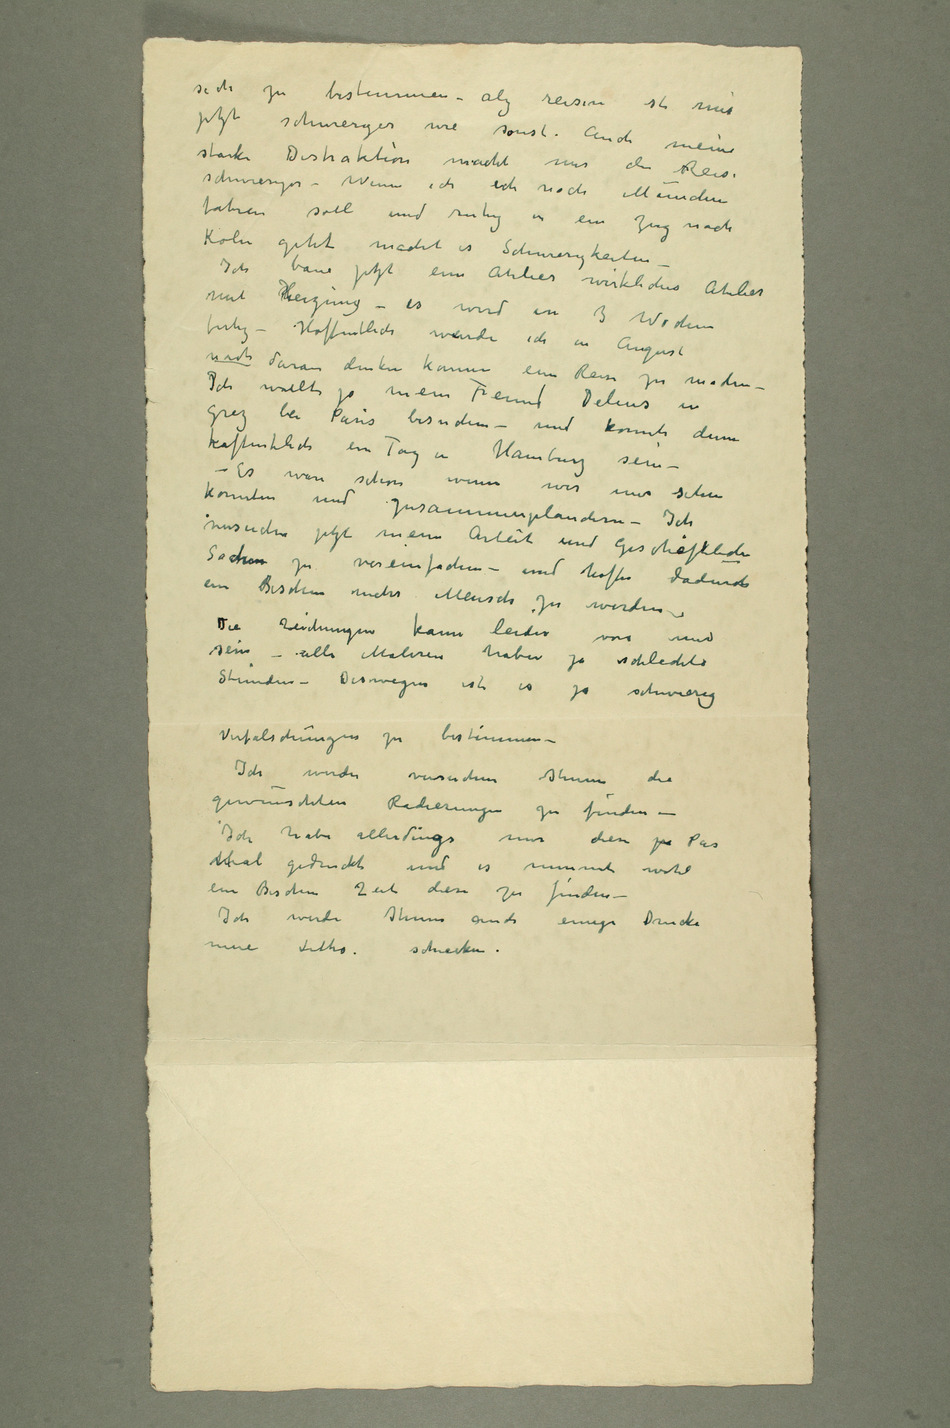 sich zu bestimmen – alg reisen ist mir
jetzt schwieriger wie sonst. Auch meine
starke Distraktion macht mir die Reise
schwieriger – Wenn ich ich nach München
fahren soll und ruhig in ein Zug nach
Köln geht macht es Schwierigkeiten –
Ich baue jetzt ein Atelier wirkliches Atelier
mit Heizung – es wird in 3 Wochen
fertig – Hoffentlich werde ich in August
nicht daran denken können eine Reise zu machen –
Ich wollte ja mein Freund Delius in
Grez bei Paris besuchen – und konnte dann
hoffentlich ein Tag in Hamburg sein –
– Es wäre schön wenn wir uns sehen
konnten und zusammenplaudern – Ich
versuche jetzt meine Arbeit und Geschäftliche
Sachen zu vereinfachen – und hoffe dadurch
ein Bischen mehr Mensch zu werden –
Die Zeichnungen kann leider von mir
sein – alle Maleren haben ja schlechte
Stunden – Deswegen ist es ja schwierig
Verfalschungen zu bestimmen –
Ich werde versuchen Ihnen die
gewünschten Radierungen zu finden –
Ich habe allerdings nur diese pa Par
Mal gedruckt und es nimmt wohl
ein Bischen Zeit diese zu finden –
Ich werde Ihnen auch einige Drucke
neue Litho. schicken.